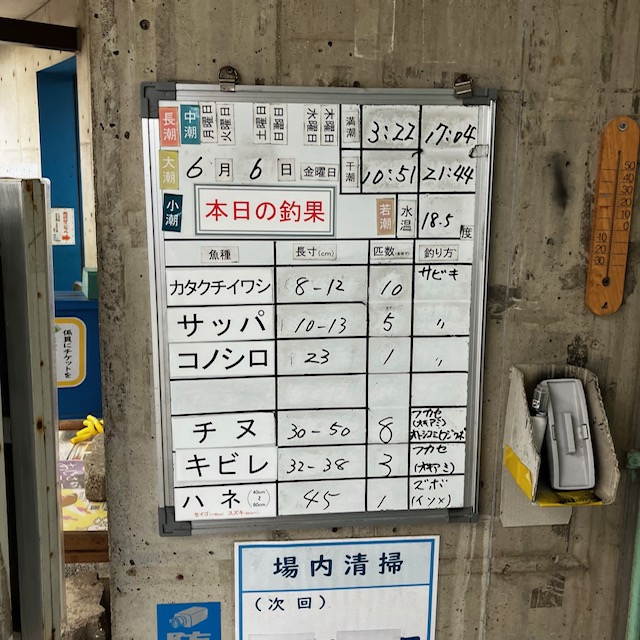 長潮 中潮 月曜日 火曜日 土曜日 日曜日 水曜日 木曜日 満潮 3:22 17:04
大潮 6月6日 金曜日 干潮 10:51 21:44
小潮 本日の釣果 若潮 水温 18.5度
魚種 長寸(cm) 匹数 釣り方
カタクチイワシ 8-12 10 サビキ
サッパ 10-13 5 〃
コノシロ 23 1 〃
チヌ 30-50 8 フカセ
(オキアミ)
キビレ 32-38 3 フカセ
(オキアミ)
ハネ (40cm~60cm) 45 1 ズボ
(イソメ)
セイゴ スズキ
係員にチケットを
50 40 30 20 10 0 10 20 30
場内清掃
(次回)
防